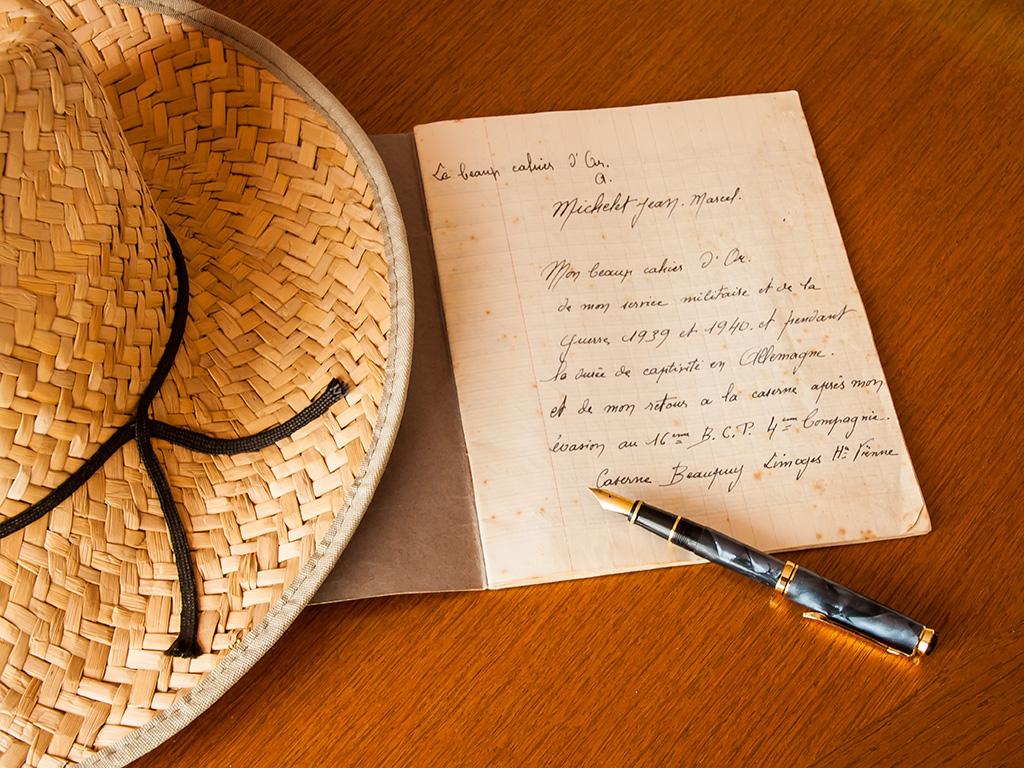 Le beaup cahier d'Or.
a.
Michelet Jean. Marcel.
Mon beaup cahier d'Or.
de mon service militaire et de la
guerre 1939 et 1940. et pendant
la durée de captivité en Allemagne.
et de mon retour a la caserne après mon
évasion au 16ème B.C.P. 4ème Compagnie.
Caserne Beaupuy Limoges Hte Vienne